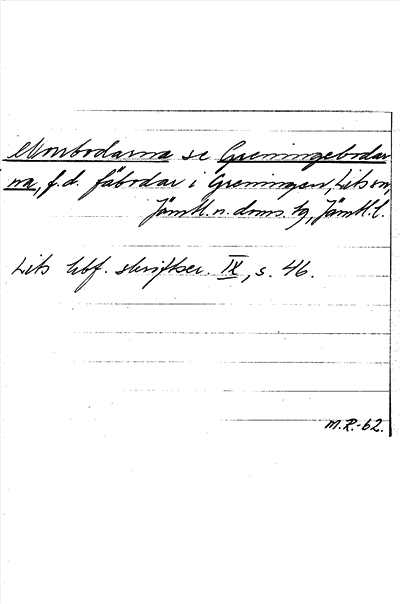 Monbodarna se Greningebodar
na, f.d. fäbodar i Greningen, Lits sn,
Jämtl. n. doms. tg, Jämtl. l.
Lits hbf. skriftser. IX, s. 46.
M.R.-62.